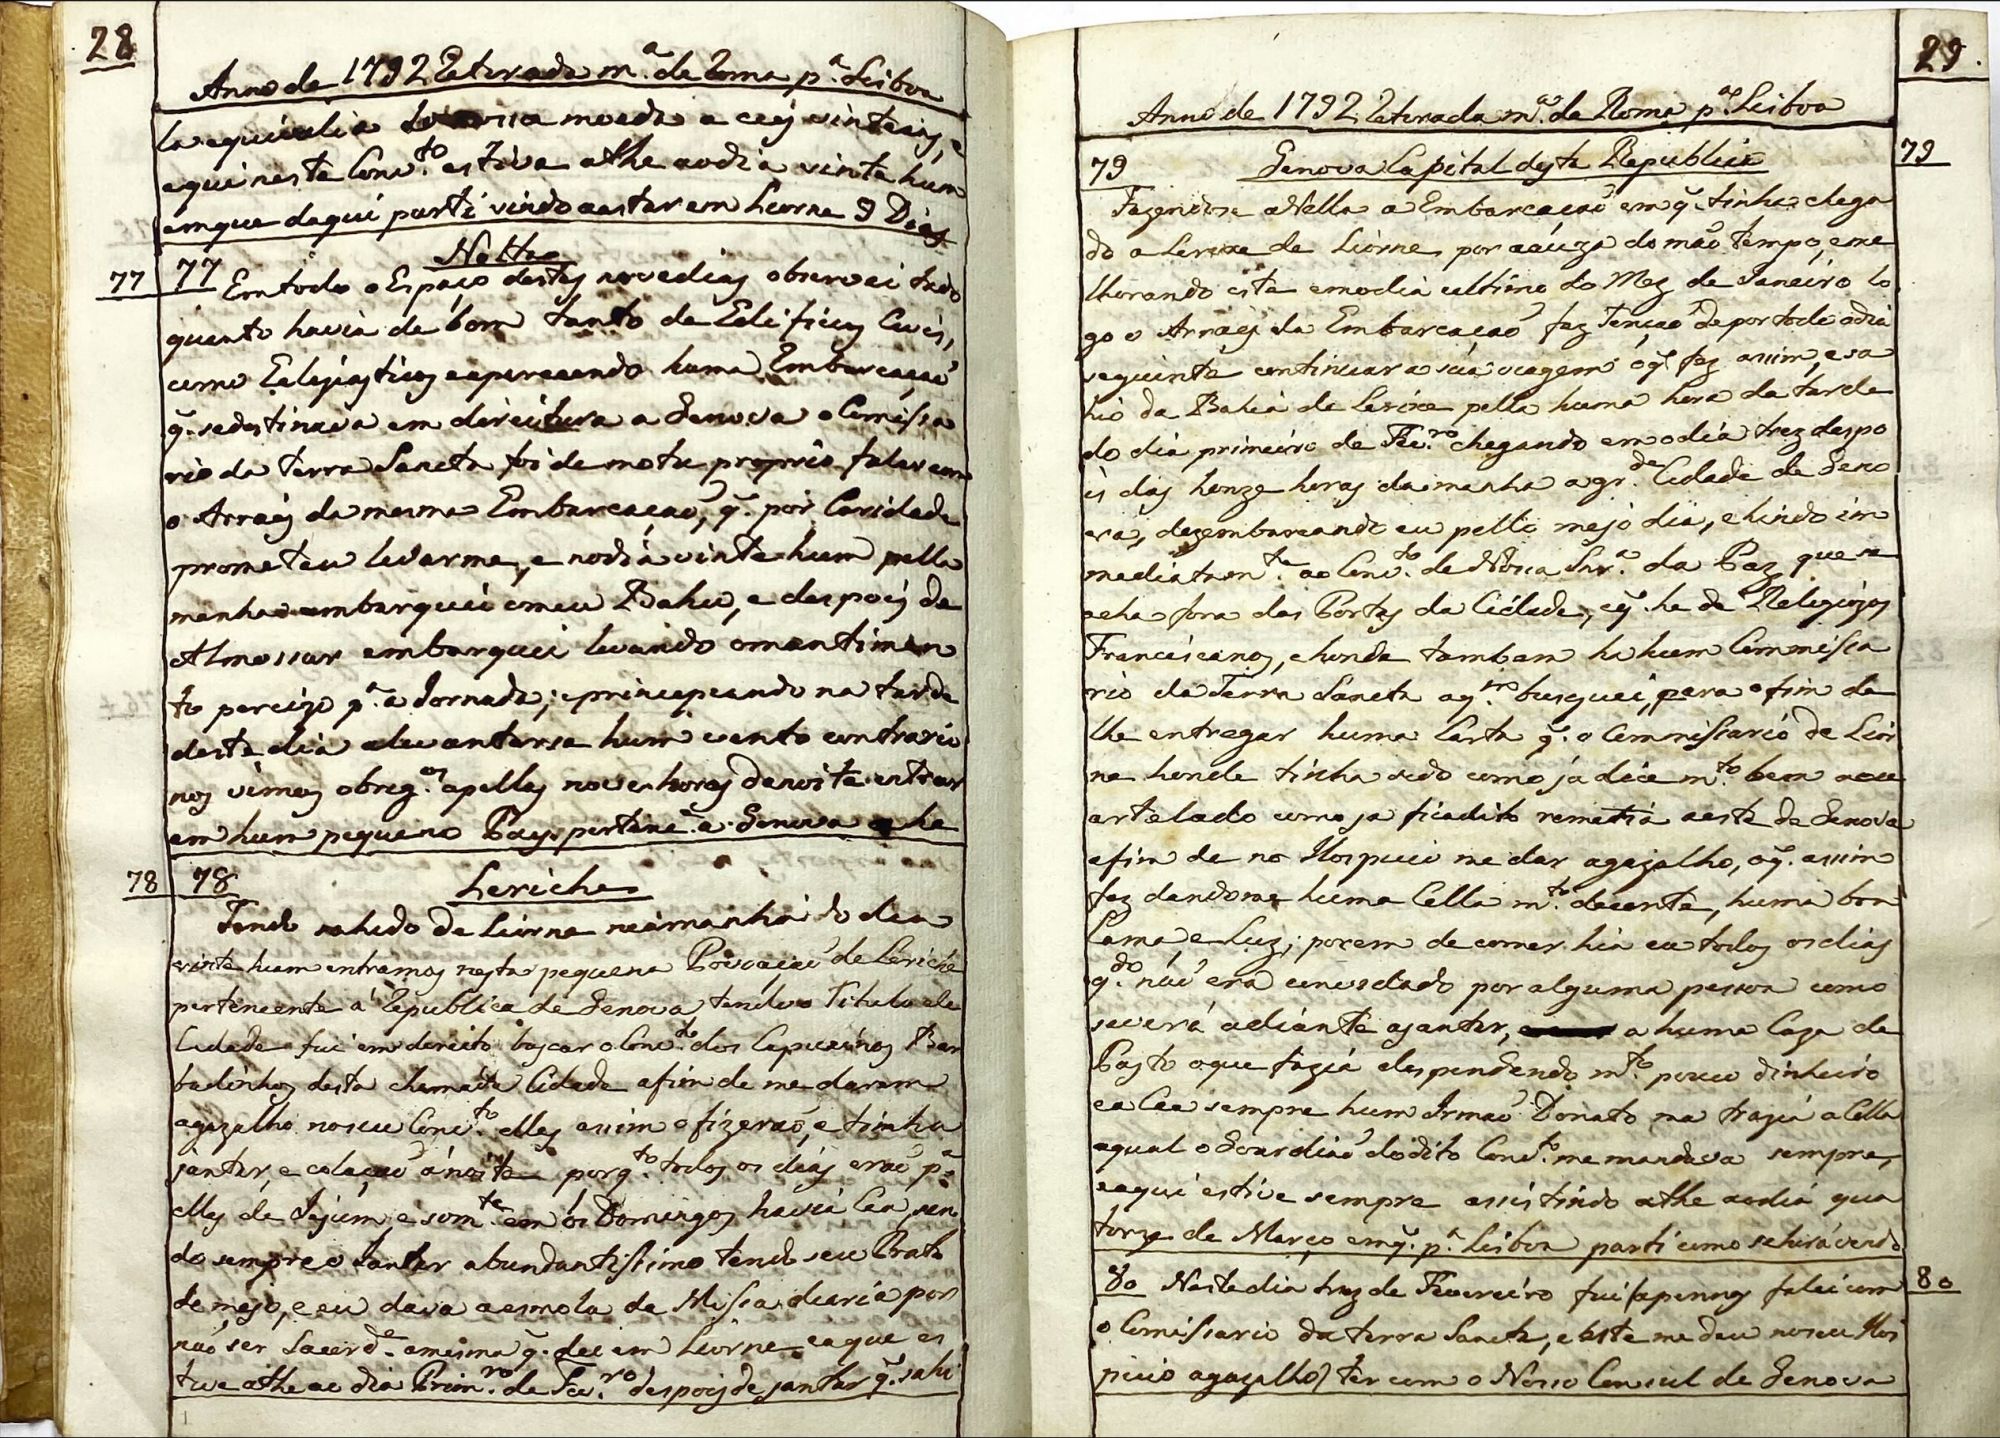 28
Anno de 1792 Reterada m.ª de Roma p.ª Lisboa
la equivalia da nossa moeda a ceis vinteins, e
aqui neste Conv.to estive athe ao dia vinte hum
em que daqui parti vindo a estar em Liorne 9 Dias
Notta
77 77 Em todo o Espaço destes nove dias observei tudo
quanto havia de bom tanto de Edificios Civis,
como Eclejiasticos e aparecendo huma Embarcaçaõ
q̃. se destinava em direitura a Genova o Comissa
rio da Terra Sancta foi de motu proprio falar com
o Arraes da mesma Embarcaçaõ, q̃. por Caridade
prometeu levarme, e no dia vinte hum pella
manha embarquei o meu Bahu, e despois de
Almossar embarquei levando o mantimen
to percizo p.ª a Jornada; e principeando na tarde
deste dia a levantarse hum vento contrario
nos vimos obrig.os a pellas nove horas da noite entrar
em hum pequeno Pays pertenc.e a Genova q̃ he
78 78 Leriche
Tendo sahido de Liorne na manhá do dia
vinte hum entramos nesta pequena Povoaçaõ de Leriche
pertencente á Republica de Genova, tendo o Titulo de
Cidade fui em dereito buscar o Conv.to dos Capucinos Bar
badinhos desta chamada Cidade afim de me darem
agazalho no seu Conv.to elles assim o fizeraõ, e tinha
jantar, e colaçaõ á noite porq.to todos os dias eraõ p.ª
elles de Jejum, e som.te em os Domingos havia Cea, sen
do sempre o Jantar abundantissimo tendo seu Prato
de mejo, e eu dava a esmola da Missa diaria por
naõ ser Sacerd.e a mesma q̃. dei em Liorne e aqui es
tive athe ao dia Prim.ro de Fev.ro despois de jantar q̃. sahi
29.
Anno de 1792 Reterada m.ª de Roma p.ª Lisboa
79 Genova Capital desta Republica 79
Fazendose a Vella a Embarcaçaõ em q̃. tinha chega
do a Lerixe de Liorne por cáuza do máo tempo, e me
lhorando este em o dia ultimo do Mez de Janeiro lo
go o Arraes da Embarcaçaõ faz Tençaõ de por todo o dia
seguinte continuar a sua viagem o q̃. fez assim, e sa
hio da Bahia de Lerixe pella huma hora da tarde
do dia primeiro de Fev.ro chegando em o dia trez despo
is das honze horas da manha a gr.de Cidade de Geno
va, dezembarcando eu pello mejo dia, e hindo im
mediatam.te ao Conv.to de Nossa Snr.ª da Paz que se
acha fora das Portas da Cidade, e q̃. he de Religiozos
Franciscanos, e honde tambem ha hum Commissa
rio da Terra Sancta a q.m busquei, para o fim de
lhe entregar huma Carta q̃. o Commissario de Lior
ne honde tinha sido como ja dice m.to bem
artelado como ja fica dito remetia a este de Genova
afim de no Hospicio me dar agazalho, o q̃. assim
fez dandome huma Cella m.to decente, huma boa
Cama, e Luz; porem de comer hia eu todos os dias
q.do náo era convidado por alguma pessoa como
se verá adiante a jantar, a huma Caza de
Pasto o que fazia despendendo m.to pouco dinheiro
e a Cea sempre hum Irmaõ Donato ma trazia a Cella
a qual o Gourdiaõ do dito Conv.to me mandava sempre,
e aqui estive sempre assistindo athe ao dia qua
torze de Março em q̃. p.ª Lisboa parti como se hirá vendo
80 Neste dia trez de Fevereiro fui (apennas falei com 80
o Comissario da terra Sancta, e este me deu no seu Hos
picio agazalho) ter com o Nosso Consul de Genova